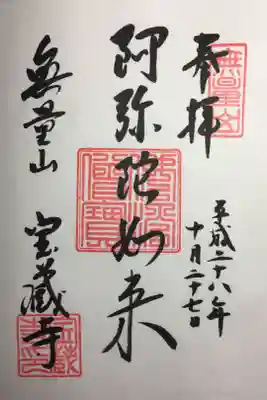 奉拝
平成二十八年
十月二十七日
阿弥陀如来
無量山
宝蔵寺